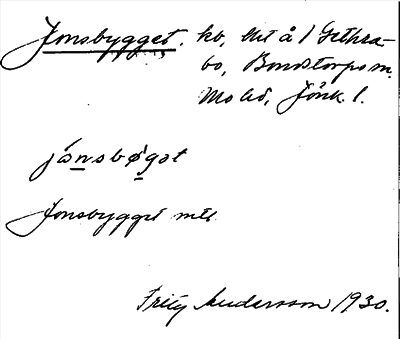 Jonsbygget. hb, hit å 1 Gethra-
bo, Bondstorps sn.
Mo hd, Jönk. l.
jónsbøgət
Jonsbygget
Fritz Andersson 1930.